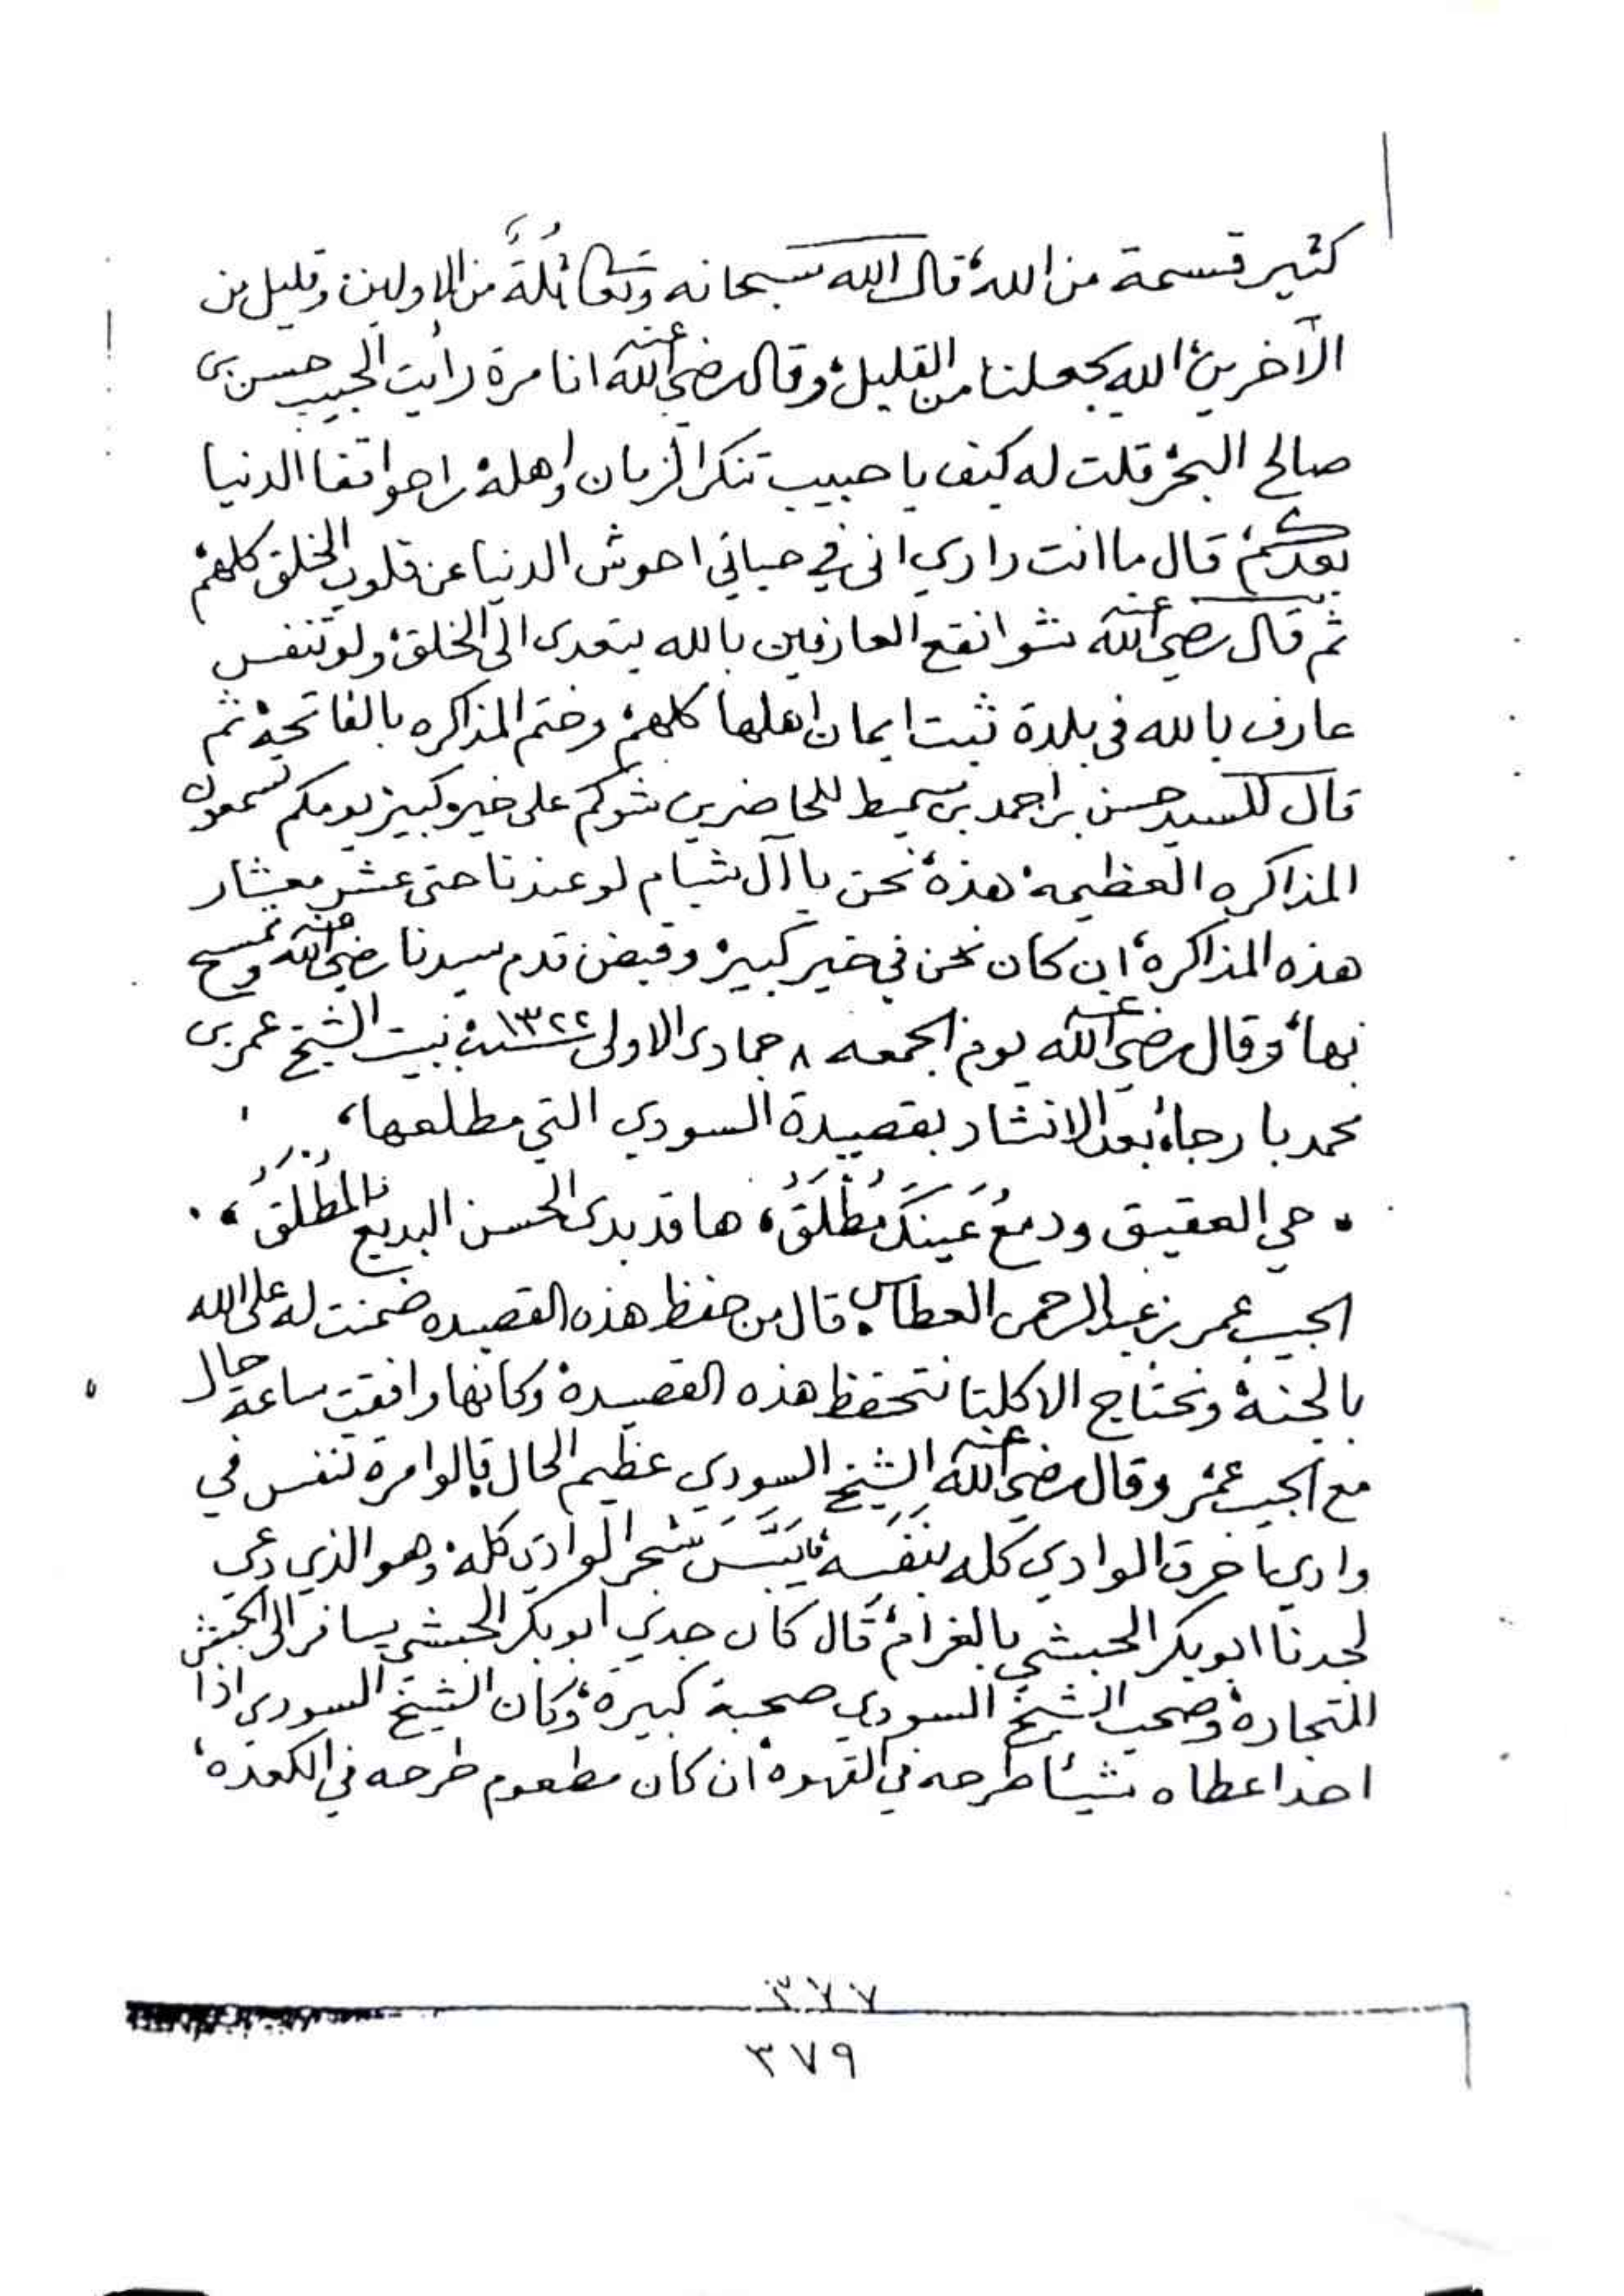 كثير قسمة من الله، قال الله سبحانه وتعالى ثُلَّةٌ من الاولين وقليل من
الآخرين، الله يجعلنا من القليل، وقال رضي الله عنه انا مرة رأيت الحبيب حسن بن
صالح البحر قلت له كيف يا حبيب تنكر الزمان واهله راحوا قفا الدنيا
بعدكم، قال ما انت داري اني في حياتي احوش الدنيا عن قلوب الخلق كلهم
ثم قال رضي الله عنه شوا نفع العارفين بالله يتعدى الى الخلق، ولو تنفس
عارف بالله في بلدة ثبت ايمان اهلها كلهم، وختم المذاكره بالفاتحة، ثم
قال للسيد حسن بن احمد بن سميط للحاضرين شوكم على خير وكبير يومكم تسمعون
المذاكره العظيمه هذه، نحن يا آل شبام لو عندنا حتى عشر معشار
هذه المذاكره، ان كان نحن في خير كبير، وقبض قدم سيدنا رضي الله عنه وتمسح
بها، وقال رضي الله عنه يوم الجمعه ٨ جمادى الاولى سنة ١٣٢٢ في بيت الشيخ عمر بن
محمد بارجاء، بعد الانشاد بقصيدة السودي التي مطلعها،
• حي العقيق ودمعُ عَينِكَ مُطْلَقُ، ها قد بدى الحسن البديع المُطْلَقُ،
الحبيب عمر بن عبد الرحمن العطاس، قال من حفظ هذه القصيده ضمنت له على الله
بالجنة، ونحتاج الا كلنا نتحفظ هذه القصيدة، وكانها وافقت ساعة حال
مع الحبيب عمر، وقال رضي الله عنه الشيخ السودي عظيم الحال قالوا مرة تنفس في
وادي، احرق الوادي كله بنَفَسه، يَبَّسَ شجر الوادي كله، وهو الذي دعي
لجدنا ابو بكر الحبشي بالغرام، قال كان جدي ابو بكر الحبشي يسافر الى الحبش
للتجارة، وصحب الشيخ السودي صحبة كبيرة، وكان الشيخ السودي اذا
احد اعطاه شيئا طرحه في القهوة، ان كان مطعوم طرحه في الكعده،
٣٧٧
٣٧٩